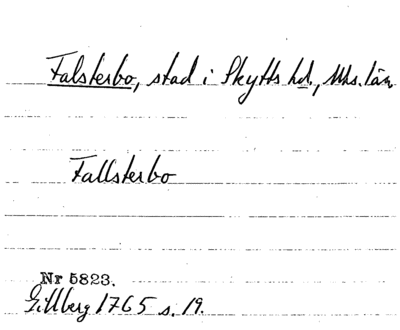 Falsterbo, stad i Skytts hd., Mhs. län
Fallsterbo
Nr 5823.
Gillberg 1765 s. 19.